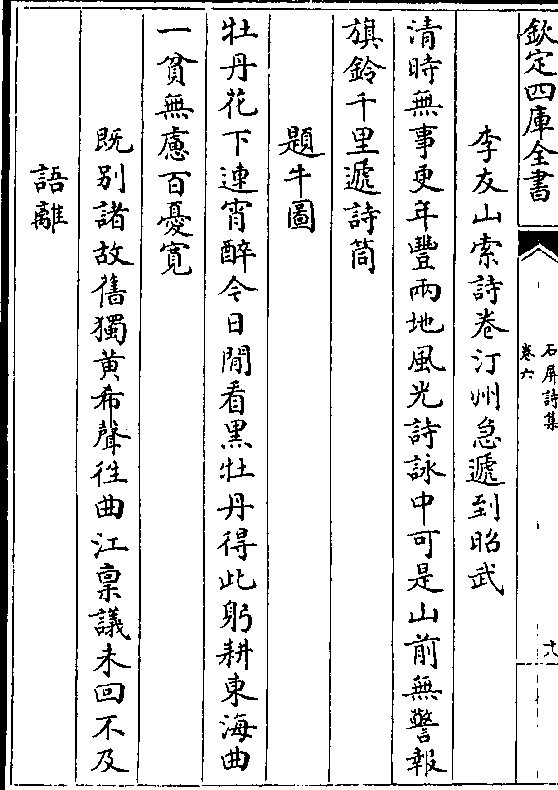 欽定四庫全書
石屏詩集
卷六
李友山索詩卷汀州急遞到昭武
清時無事更年豐兩地風光詩詠中可是山前無警報
旗鈴千里遞詩筒
題牛圖
牡丹花下連宵醉今日閒看黒牡丹得此躬耕東海曲
一貧無慮百憂寛
既別諸故舊獨黄希聲徃曲江稟議未回不及
語離